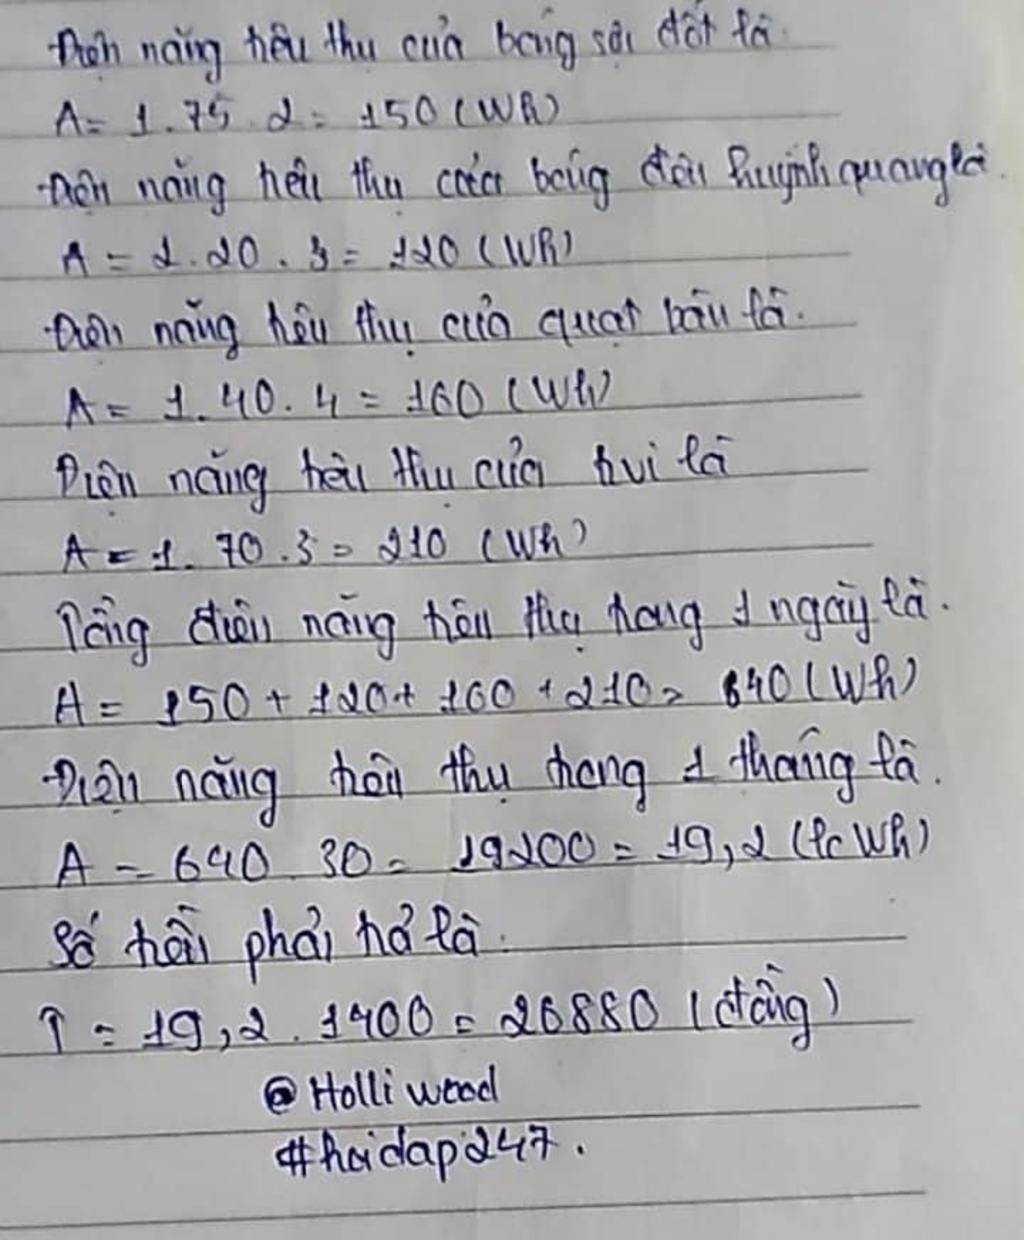 Điện năng tiêu thụ của bóng sợi đốt là.
A = 1.75.2 = 150 (Wh)
Điện năng tiêu thụ của bóng đèn huỳnh quang là.
A = 2.20.3 = 120 (Wh)
Điện năng tiêu thụ của quạt bàn là.
A = 1.40.4 = 160 (Wh)
Điện năng tiêu thụ của tivi là
A = 1.70.3 = 210 (Wh)
Tổng điện năng tiêu thụ trong 1 ngày là.
A = 150 + 120 + 160 + 210 = 640 (Wh)
Điện năng tiêu thụ trong 1 tháng là.
A = 640.30 = 19200 = 19,2 (kWh)
Số tiền phải trả là.
T = 19,2.1400 = 26880 (đồng)
@Holliwood
#hoidap247.